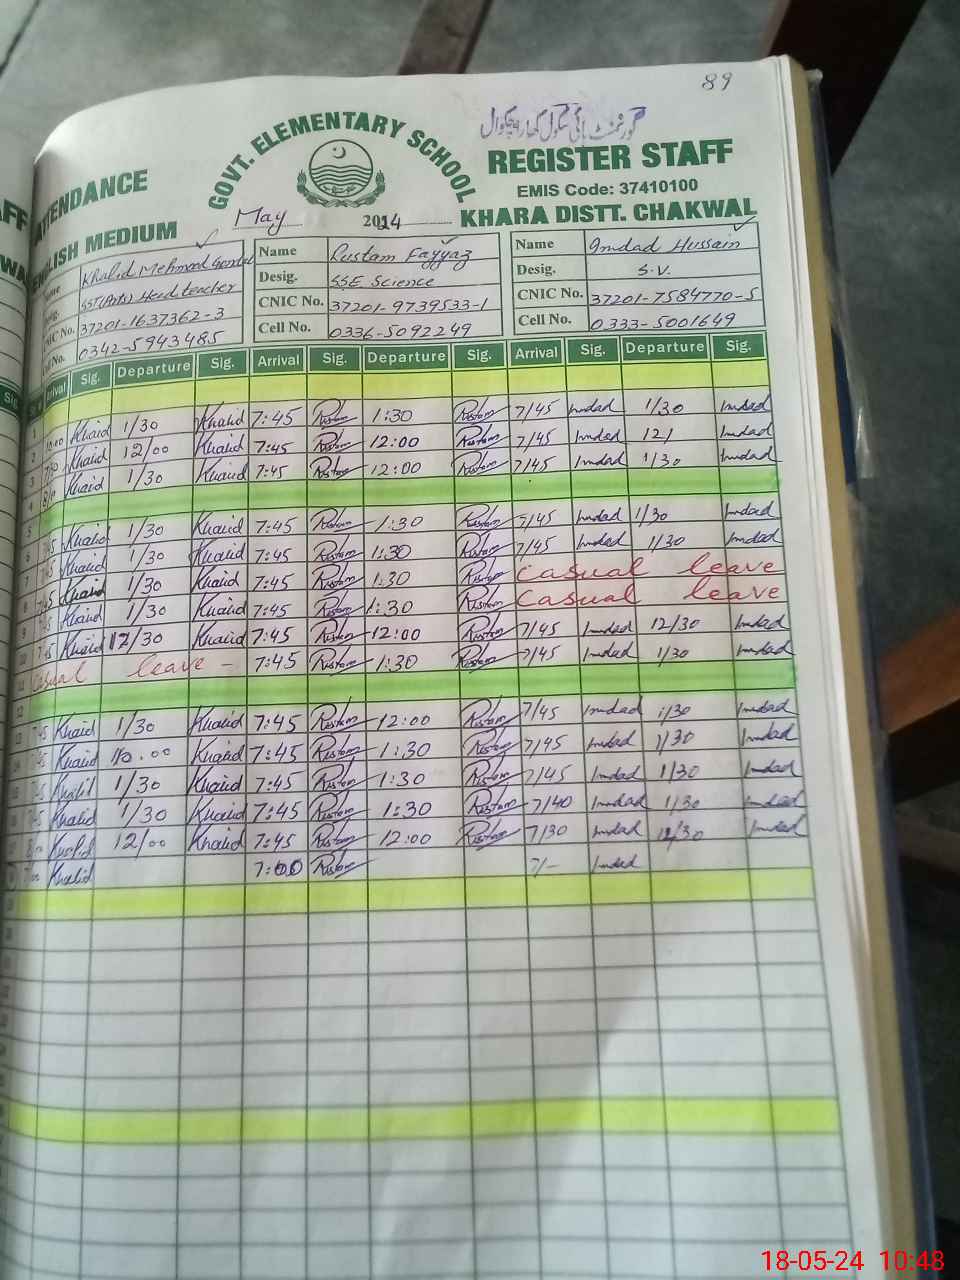 89
گورنمنٹ ہائی سکول کھارا چکوال
ATTENDANCE
GOVT. ELEMENTARY SCHOOL
REGISTER STAFF
EMIS Code: 37410100
ENGLISH MEDIUM
May 2024
KHARA DISTT. CHAKWAL
Khalid Mehmood
Name Rustam Fayyaz
Name Imdad Hussain
SST(Arts) Headteacher
Desig. SSE Science
Desig. S.V.
37201-1637362-3
CNIC No. 37201-9739533-1
CNIC No. 37201-7584770-5
0342-5943485
Cell No. 0336-5092249
Cell No. 0333-5001649
Sig. Departure Sig. Arrival Sig. Departure Sig. Arrival Sig. Departure Sig.
1 Khalid 1/30 Khalid 7:45 Rustam 1:30 Rustam 7/45 Imdad 1/30 Imdad
2 Khalid 12/00 Khalid 7:45 Rustam 12:00 Rustam 7/45 Imdad 12/ Imdad
3 Khalid 1/30 Khalid 7:45 Rustam 12:00 Rustam 7/45 Imdad 1/30 Imdad
4
5 Khalid 1/30 Khalid 7:45 Rustam 1:30 Rustam 7/45 Imdad 1/30 Imdad
6 Khalid 1/30 Khalid 7:45 Rustam 1:30 Rustam 7/45 Imdad 1/30 Imdad
7 Khalid 1/30 Khalid 7:45 Rustam 1:30 Rustam casual leave
8 7:45 Khalid 1/30 Khalid 7:45 Rustam 1:30 Rustam casual leave
9 Khalid 12/30 Khalid 7:45 Rustam 12:00 Rustam 7/45 Imdad 12/30 Imdad
10 Casual leave - 7:45 Rustam 1:30 Rustam 7/45 Imdad 1/30 Imdad
11
12 Khalid 1/30 Khalid 7:45 Rustam 12:00 Rustam 7/45 Imdad 1/30 Imdad
Khalid 10.00 Khalid 7:45 Rustam 1:30 Rustam 7/45 Imdad 1/30 Imdad
Khalid 1/30 Khalid 7:45 Rustam 1:30 Rustam 7/45 Imdad 1/30 Imdad
Khalid 1/30 Khalid 7:45 Rustam 1:30 Rustam 7/40 Imdad 1/30 Imdad
8:00 Khalid 12/00 Khalid 7:45 Rustam 12:00 Rustam 7/30 Imdad 12/30 Imdad
7:00 Khalid 7:00 Rustam 7/- Imdad
18-05-24 10:48